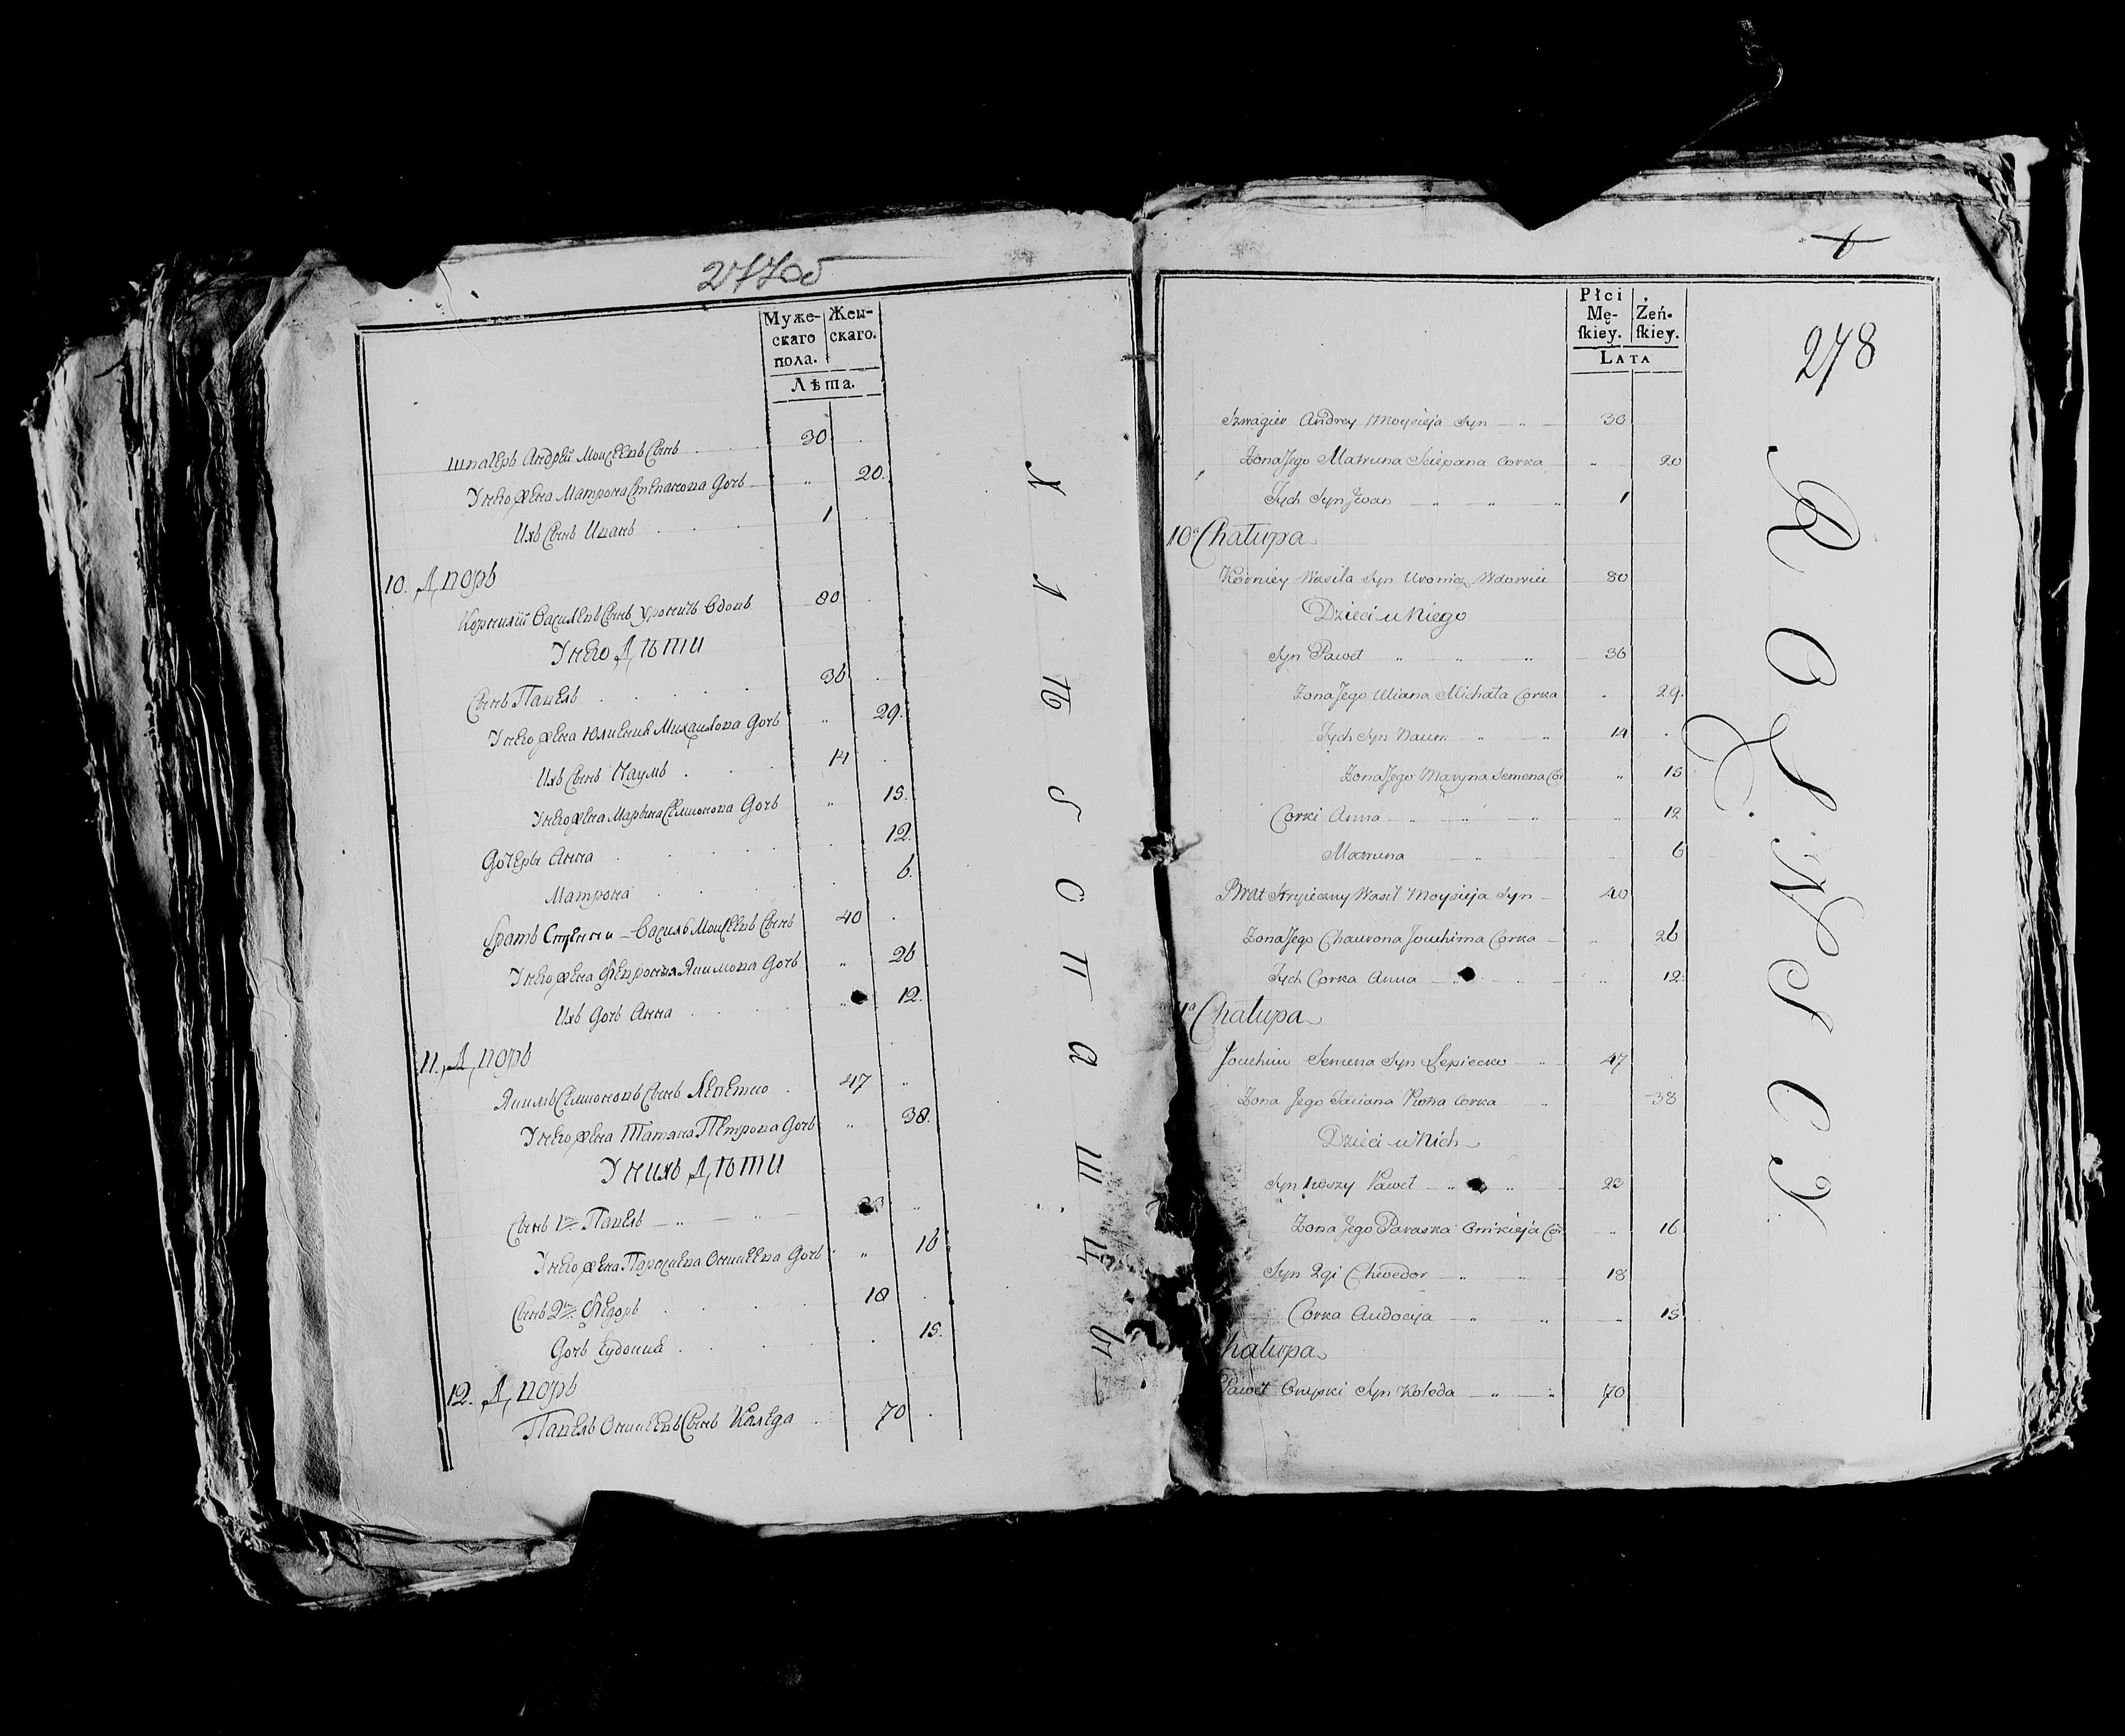 277об
Муже-
скаго
пола.
Жен-
скаго.
Лѣта.
Швагеръ Андрей Моисеевъ Сынъ 30
У него жена Матрона Степанова Дочь 20.
Ихъ Сынъ Иванъ 1
10. Дворъ
Корнилий Василевъ Сынъ Уроничъ Вдовъ 80
У него Дѣти
Сынъ Павелъ 36
У него жена Юлиения Михаилова Дочь 29.
Ихъ Сынъ Наумъ 14
У него жена Марьяна Семионова Дочь 15.
Дочеры Анна 12.
Матрона 6.
Братъ Стрѣчни Василь Моисеевъ Сынъ 40
У него жена Февронья Якимова Дочь 26
Ихъ Дочь Анна 12.
11. Дворъ
Якимъ Семионовъ Сынъ Лепетко 47
У него жена Татяна Петрова Дочь 38.
У нихъ Дѣти
Сынъ 1й Павелъ 23
У него жена Парасиева Оникеева Дочь 16
Сынъ 2й Федоръ 18
Дочь Еудокия 15.
12. Дворъ
Павелъ Оникеевъ Сынъ Каледа 70
Х л ѣ б о п а ш ц ы
278
Płci
Mę-
ſkiey.
Żeń-
ſkiey.
LATA
Szwagier Andrey Moysieja Syn 30
Zona Jego Matruna Sciepana Corka 20
Tych Syn Jwan 1
10a Chałupa
Korniey Wasila Syn Uronicz Wdowiec 80
Dzieci u Niego
Syn Paweł 36
Zona Jego Uliana Michała Corka 29.
Tych Syn Naum 14
Zona Jego Maryna Semena Cor 15
Corki Anna 12
Matruna 6
Brat Stryieczny Wasil Moysieja Syn 40
Zona Jego Chaurona Jouchima Corka 26
Tych Corka Anna 12.
Chałupa
Jouchim Semena Syn Lepiecko 47
Zona Jego Taciana Piotra Corka 38
Dzieci u Nich
Syn 1wszy Paweł 23
Zona Jego Paraska Onikieja Cor 16
Syn 2gi Chwedor 18
Corka Audocija 15
hałupa
Paweł Onyski Syn Koleda 70
R O L N S C Y